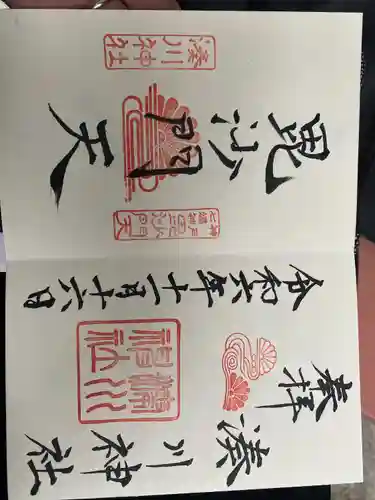 奉拝
湊川神社
湊川神社
令和六年十一月十六日
湊川神社
毘沙門天
神戸七福神毘沙門天